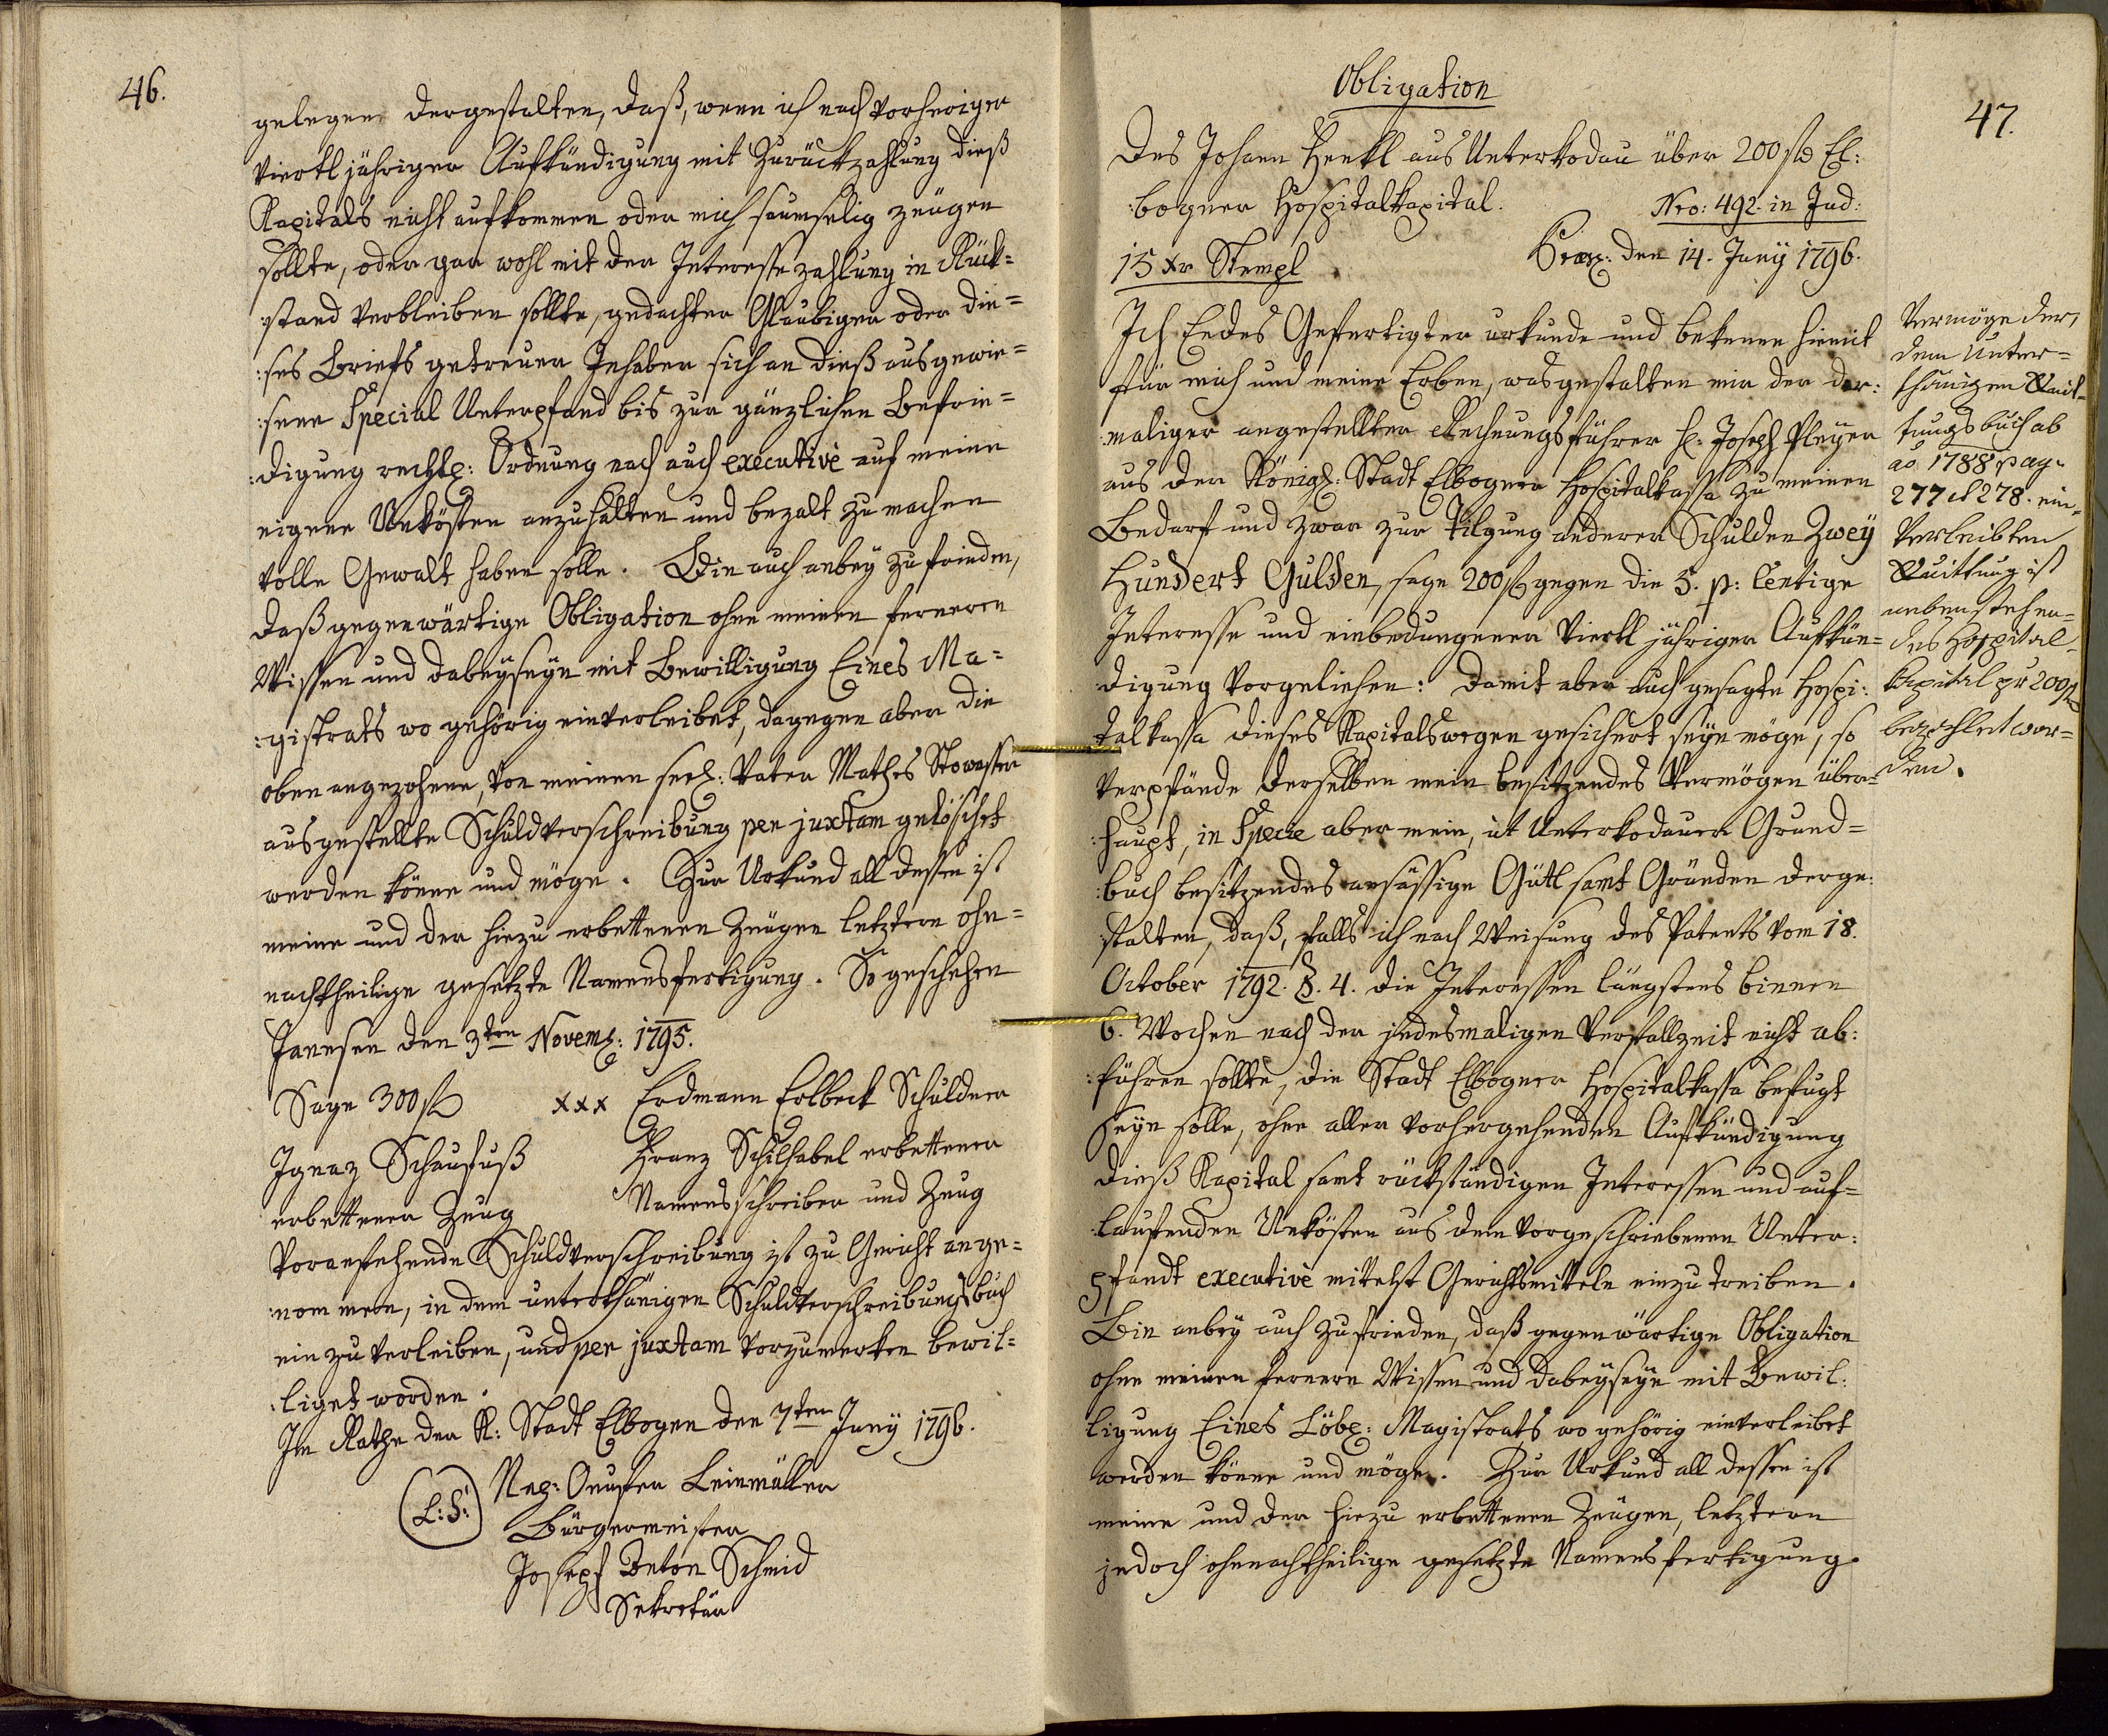 46.
gelegen dergestalten, daß, wenn ich nach vorheriger
viertl jähriger Aufkündigung mit Zurückzahlung dieß
Kapitals nicht aufkommen oder mich saumselig zeügen
sollte, oder gar wohl mit der Interesse zahlung in Rück=
:stand verbleiben sollte, gedachter Glaubiger oder die=
:ses Briefs getreuer Inhaber sich an dieß ausgewie=
:sene Special Unterpfand bis zur gänzlichen Befrie=
:digung rechtl: Ordnung nach auch executivè auf meine
eigene Unkösten anzuhalten und bezalt zu machen
volle Gewalt haben solle. Bin auch anbey zufrieden,
daß gegenwärtige Obligation ohne meinen ferneren
Wissen und dabeyseyn mit Bewilligung Eines Ma=
:gistrats wo gehörig einverleibet, dagegen aber die
oben angezohene, von meinen seel: Vater Mathes Stowasser
ausgestellte Schuldverschreibung per juxtam gelöschet
werden könne und möge. Zur Urkund all dessen ist
meine und der hiezu erbettenen Zeügen letztern ohn=
nachtheilige gesetzte Namensfertigung. So geschehen
Janesen den 3ten Novemb: 1795.
Sage 300 fl xxx Erdmann Erlbeck Schuldner
Ignaz Schaufuß Franz Schilhabel erbettener
erbettener Zeug Namensschreiber und Zeug
Voranstehende Schuldverschreibung ist zu Gericht ange=
:nommen, in dem unterthänigen Schuldverschreibungsbuch
ein zu verleiben, und per juxtam vorzumerken bewil=
:liget worden.
Im Rathe der K: Stadt Elbogen den 7ten Juny 1796.
(L:S:) Leinmüller
Bürgermeister
Joseph Anton Schmid
Sekretär
47.
Obligation
Des Johann Henkl aus Unterkodau über 200 fl El:
:bogner Hospitalkapital.
Nro: 492. in Jud:
15 xr Stempl
Præs: den 14. Juny 1796.
Ich Endes Gefertigter urkunde und bekenne hiemit
für mich und meine Erben, wasgestalten mir der der:
:maliger angestellter Rechnungsführer H: Joseph Pleyer
aus der Königl: Stadt Elbogner Hospitalkassa zu meinen
Bedarf und zwar zur Tilgung anderer Schulden Zwey
Hundert Gulden, sage 200 fl gegen die 5. p: Centige
Interesse und einbedungener viertl jähriger Aufkün=
digung vorgeliehen: Damit aber auch gesagte Hospi:
talkassa dieses Kapitalswegen gesichert seyn möge, so
verpfände derselben mein besitzendes Vermögen über=
:haupt, in Specie aber mein, in Unterkodauer Grund=
:buch besitzendes ansässige Gütl samt Gründen derge:
:stalten, daß, falls ich nach Weisung des Patents vom 18.
October 1792. §. 4. die Interessen längstens binnen
6. Wochen nach der jedesmaligen Verfallzeit nicht ab:
:führen sollte, die Stadt Elbogner Hospitalkassa befugt
seyn solle, ohne aller vorhergehenden Aufkündigung
dieß Kapital samt rückständigen Interessen und auf=
:laufenden Unkösten aus dem vorgeschriebenen Unter:
pfandt executivè mitelst Gerichtsmitteln einzutreiben.
Bin anbey auch zufrieden, daß gegenwärtige Obligation
ohne meinen fernern Wissen und dabeyseyn mit Bewil:
ligung Eines Löbl: Magistrats wo gehörig einverleibet
werden könne und möge. Zur Urkund all dessen ist
meine und der hiezu erbettenen Zeügen, letztern
jedoch ohnnachtheilige gesetzte Namensfertigung.
Vermöge der,
dem Unter=
thänigen Quit=
tungsbuch ab
ao. 1788 pag.
277 et 278. ein=
verleibten
Quittung ist
nebenstehen=
des Hospital=
kapital pr 200 fl
bezahlet wor=
den.